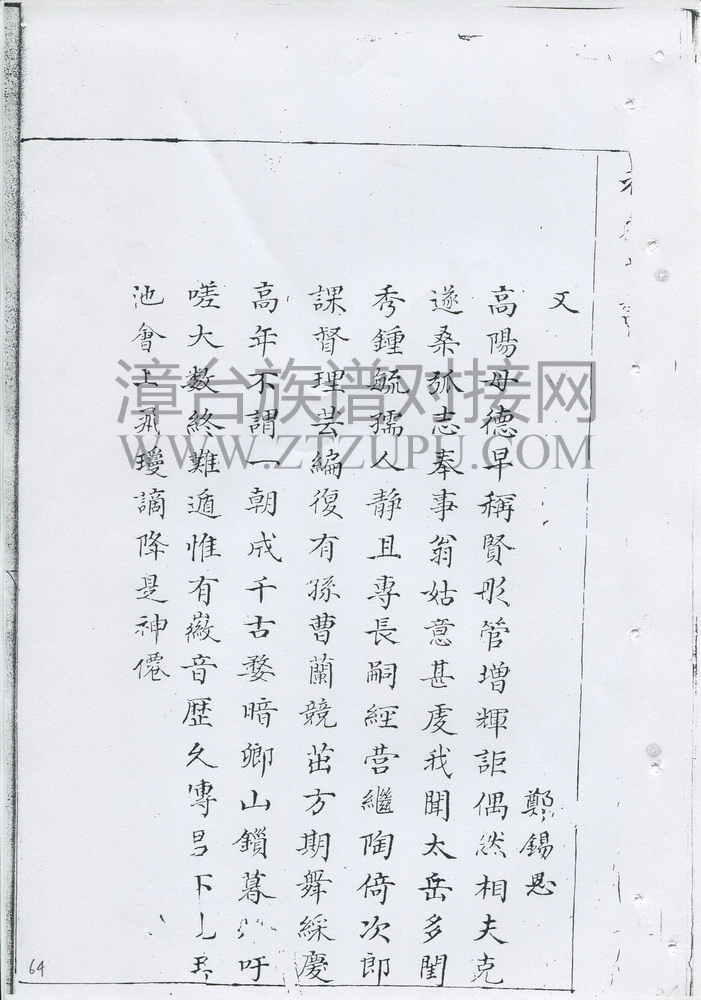 文
鄭錫恩
高陽母德早稱賢彤管增輝詎偶然相夫克
遂桑弧志奉事翁姑意甚虔我聞太岳多閨
秀鍾毓孺人静且專長嗣經营繼陶倚次郎
課督理芸編復有孫曹蘭競茁方期舞綵慶
高年不謂一朝成千古婺暗卿山鎖暮吁
嗟大数終難遁惟有徽音歷久傳
池會上 謫降是神僊
漳台族谱对接网
WWW.ZTZUPU.COM
64